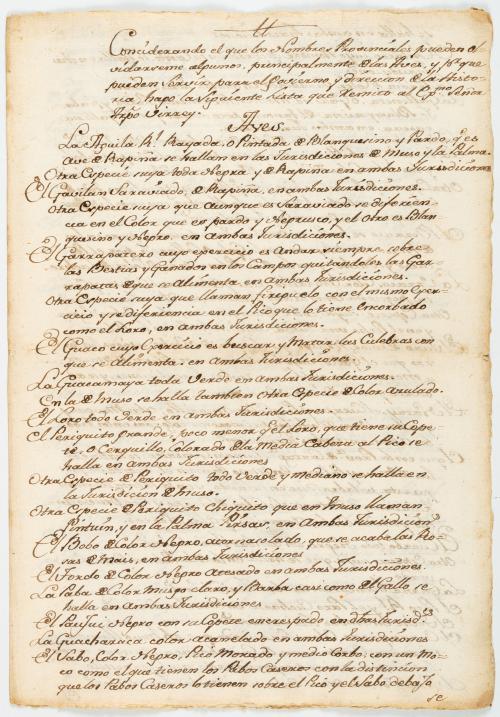 Conciderando el que los Nombres Provinciales pueden ol
vidarseme algunos, principalmente de las Aves, y pr. que
pueden servir para el Govierno, y direccion de la Histo
ria, hago la siguiente Lista que remito al Exmo. Señor
Arzpo Virrey.
Aves
La Aguila Rl. Rayada, o Pintada de Blanquesino y Pardo, q. es
ave de Rapiña se hallan en las Jurisdiciones de Muso y la Palma.
Otra Especie suya toda Negra y de Rapiña en ambas Jurisdiciones
El Gavilan Saraviado, de Rapiña, en ambas Jurisdiciones.
Otra Especie suya que Aunque es Saraviado se diferien
cia en el Color que es pardo y Negrusco, y el otro es Blan
quesino y Negro, en Ambas Jurisdiciones.
El Garrapatero cuyo exercicio es Andar siempre sobre
las Bestias y Ganados en los Campos quitandoles las Gar
rapatas de que se Alimenta en ambas Jurisdiciones.
Otra Especie suya que llaman firiguelo con el mismo Exer
cicio y se diferiencia en el Pico que lo tiene Encorbado
como el Loro, en ambas Jurisdiciones.
El Guaco cuyo Exercicio es buscar y Matar las Culebras con
que se Alimenta. en Ambas Jurisdiciones.
La Guacamaya toda Verde en ambas Jurisdiciones.
En la de Muso se halla tambien otra Especie de Color Asulado.
El Loro todo Verde en Ambas Jurisdiciones.
El Periquito Grande, poco menor q. el Loro, que tiene su Cope
te, o Cerquillo, Colorado de la Media Cabeza al Pico se
halla en ambas Jurisdiciones
Otra Especie de Periquito todo Verde y Mediano se halla en
la Jurisdicion de Muso.
Otra Especie de Periquito Chiquito que en Muso llaman
y en la Palma en Ambas Jurisdicion
El Bobo de Color Negro, atornasolado, que se acaba las Ro
sas de Mais, en ambas Jurisdiciones
El Tordo de Color Negro Atesado en ambas Jurisdiciones.
La Paba de Color Musgo claro, y Barba casi como el Gallo se
halla en Ambas Jurisdiciones
El Paugi Negro con su Copete encrespado en dhas Jurisd.
La Guacharaca color acanelado en ambas Jurisdiciones
El Pabo, Color Negro, Pico Morado y medio Corbo; con un Mo
co como el que tienen los Pabos Caseros con la distincion
que los Pabos Caseros lo tienen sobre el Pico y el Pabo debajo
se